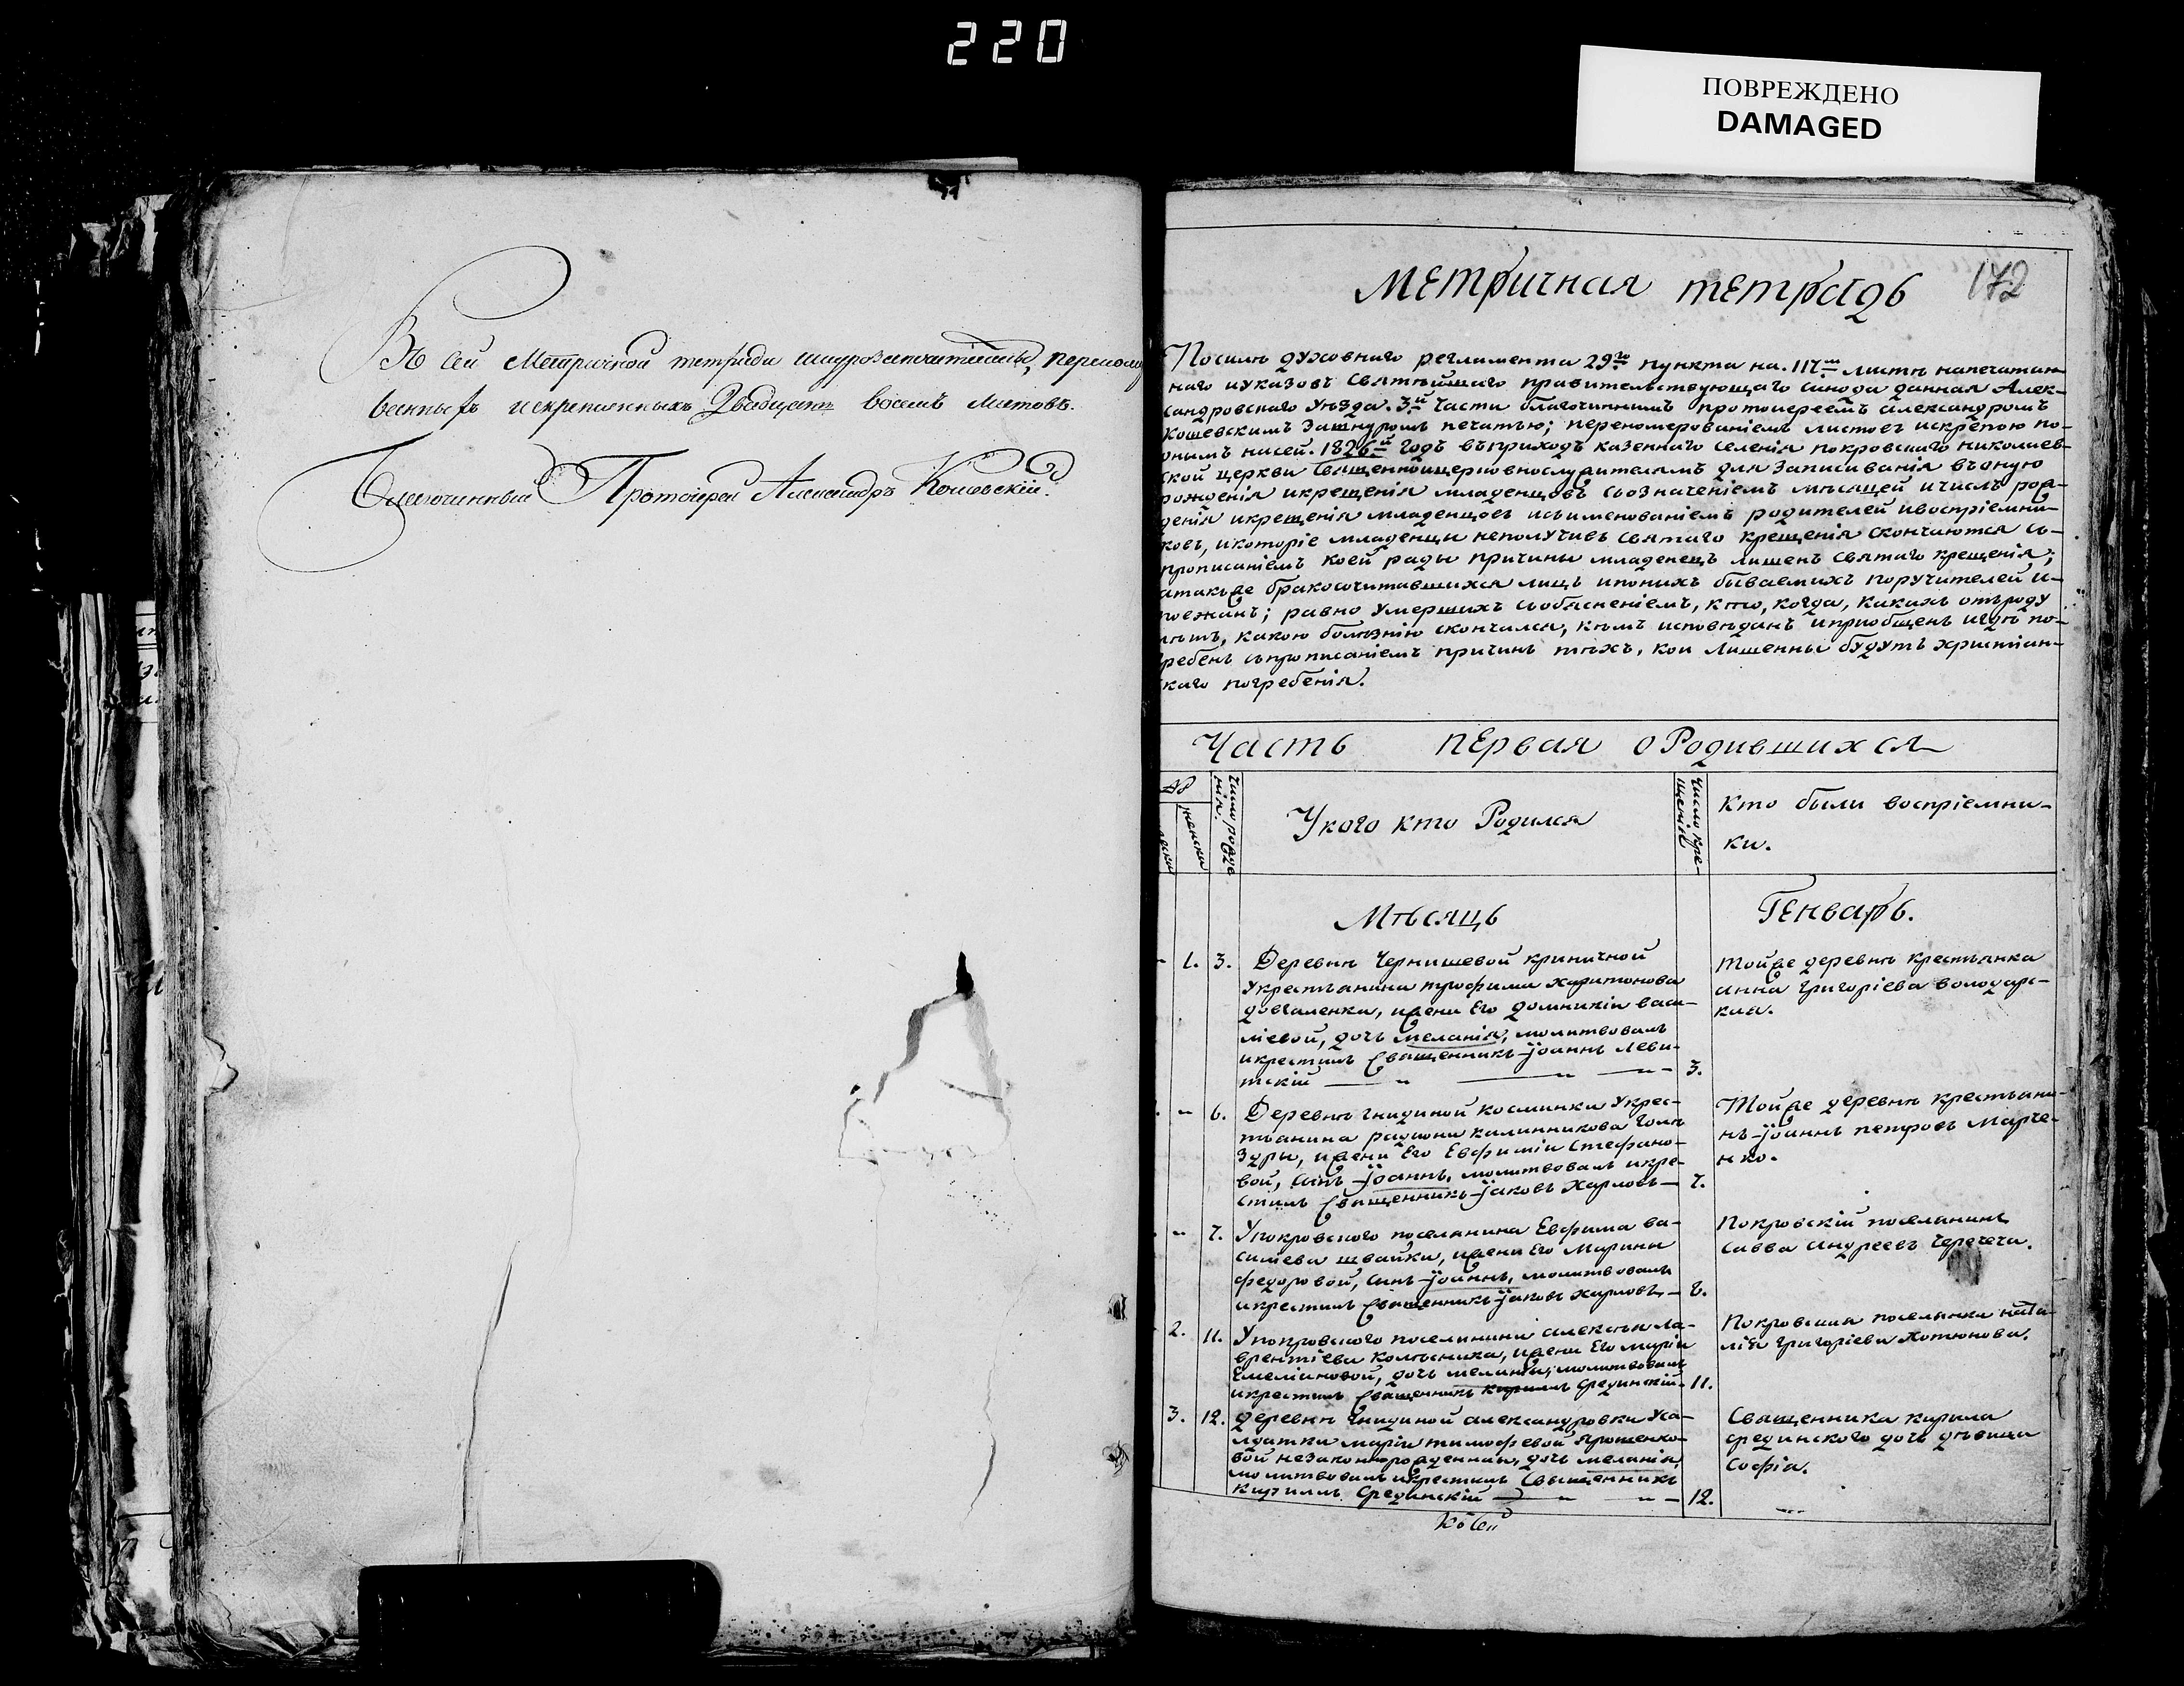 220
ПОВРЕЖДЕНО
DAMAGED
Въ сей Метричной тетради шнурозапечатанныхъ, переному
ванныхъ искрепленныхъ Двадцать восемь листовъ.
Благочинный Протоіерей Александръ Кошевскій.
Метричная тетрадь 172
По силѣ духовнаго регламента 29го пункта на. 117м листѣ напечатан
наго иуказовъ Святѣйшаго правительствующаго синода данная Алек-
сандровскаго уѣзда. 3й Части благочиннымъ протоіереемъ александромъ
кошевскимъ Зашнуромъ печатью; переномерованіемъ листовъ искрепою по-
онымъ насей. 1826й годъ въприходъ казеннаго селенія покровскаго николаев-
ской церкви Священноицерковнослужителямъ для Записиванія въоную
рожденія икрещенія младенцовъ сьозначеніемъ мѣсяцей ичислъ рож-
денія икрещенія младенцовъ исьименованіемъ родителей ивоспріемни-
ковъ, икоторіе младенцы неполучивъ святаго крещенія скончаются сь-
прописаніемъ коей рады причины младенецъ лишенъ святаго крещенія;
атакъже бракосочитавшихся лицъ ипонихъ бываемихъ поручителей и-
поежанъ; равно умершихъ сьобясненіемъ, кто, когда, какихъ отъроду
лѣтъ, какою болѣзнію скончался, кѣмъ исповѣданъ иприобщенъ игдѣ по-
гребенъ сьпрописаніемъ причинъ тѣхъ, кои Лишенны будутъ христіан-
скаго погребенія.
Часть первая о Родившихся
женски
число рожде
нія.
Укого кто Родился
число кре-
щенія
кто были воспріемни-
ки.
Мѣсяцъ
Генварь.
- 1. 3. Деревни Чернишевой криничной
Укрестьянина трофима харитонова
довгаленка, ижени Его домникіи васи-
ліевой, дочь меланія, молитвовалъ
икрестилъ Священникъ Іоаннъ Леви-
тскій 3.
Тойже деревни крестьянка
анна Григоріева володарс-
кая.
- 6. Деревни гнидиной косминки Укрес-
тьянина радіона калинникова Голо
Зуры, ижени Его Евфиміи Стефано-
вой, сынъ Іоаннъ, молитвовалъ икре-
стилъ Священникъ Іаковъ Харловъ 7.
Тойже деревни крестьяни-
нъ Іоаннъ петровъ Марче-
нко.
- 7. Упокровского поселянина Евфима ва-
силева швайки, ижени Его Марины
федоровой, сынъ Іоаннъ, молитвовалъ
икрестилъ Священникъ Іаковъ Харловъ 8.
Покровскій поселянинъ
Савва Андреевъ Черечеча.
2. 11. Упокровского поселянина алексѣя ла-
врентіева колѣсника, ижени Его маріи
Емеліановой, дочь меланія, молитвовалъ
икрестилъ Священникъ кирилъ Срединскій 11.
Покровская поселянка ната-
лія Григоріева Хотюнова.
3. 12. Деревни Гнидиной александровки Уса-
лдатки маріи тимофевой Ярошенко-
вой незаконнорожденная, дочь меланія,
молитвовалъ икрестилъ Священникъ
кирилъ Срединскій 12.
Священника кирила
срединского дочь дѣвица
Софія.